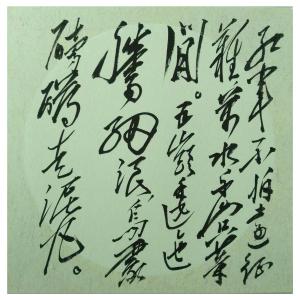 红军不怕远征
難萬水千山只等
闲。五嶺逶迤
腾细浪烏蒙
磅礴走泥丸。